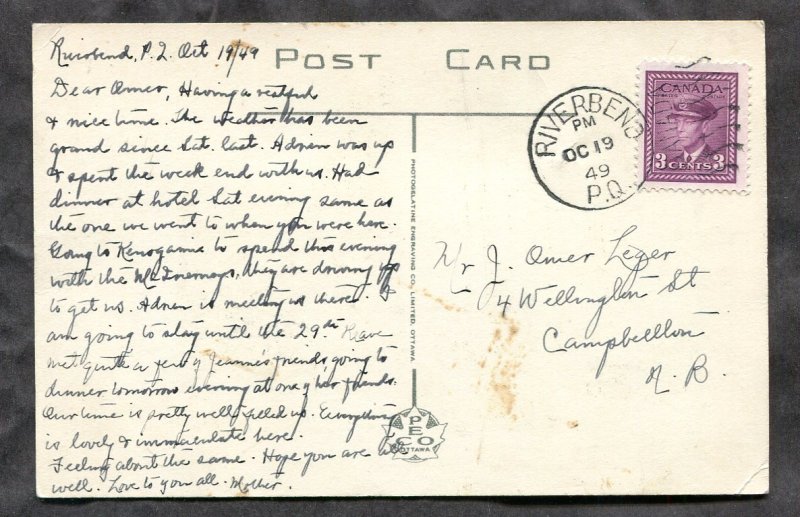 Riverbend, P.Q. Oct 19/49
POST CARD
Dear Omer, Having a restful
& nice time. The weather has been
grand since Sat. last. Adrien was up
& spent the week end with us. Had
dinner at hotel Sat evening same as
the one we went to when you were here.
Going to Kenogami to spend this evening
with the McInerneys, they are driving up
to get us. Adrien is meeting us there. I
am going to stay until the 29th Have
met quite a few of Jeanne's friends, going to
dinner tomorrow evening at one of her friends.
Our time is pretty well filled up. Everything
is lovely & immaculate here.
Feeling about the same. Hope you are all
well. Love to you all. Mother.
PHOTOGELATINE ENGRAVING CO. LIMITED, OTTAWA.
PECO
OTTAWA
RIVERBEND
PM
OC 19
49
P.Q.
CANADA
3 CENTS 3
Mr J. Omer Leger
4 Wellington St
Campbellton
N. B.